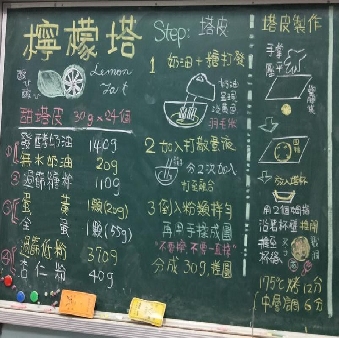 檸檬塔
Lemon
Tart
甜塔皮 30g×24個
發酵奶油 140g
無水奶油 20g
過篩糖粉 110g
蛋黃 1顆(20g)
全蛋 1顆(55g)
過篩低粉 370g
杏仁粉 40g
Step: 塔皮
1 奶油+糖打發
奶油
呈現
淡黃白
羽毛狀
2 加入打散蛋液
分2次加入
打至融合
3 倒入粉類拌勻
再用手揉成團
"不要揉,不要一直揉"
分成30g,搓圓
塔皮製作
手掌
壓平
放入塔杯
用2個拇指
沿著杯壁推開
175℃烤12分
中層調 6分